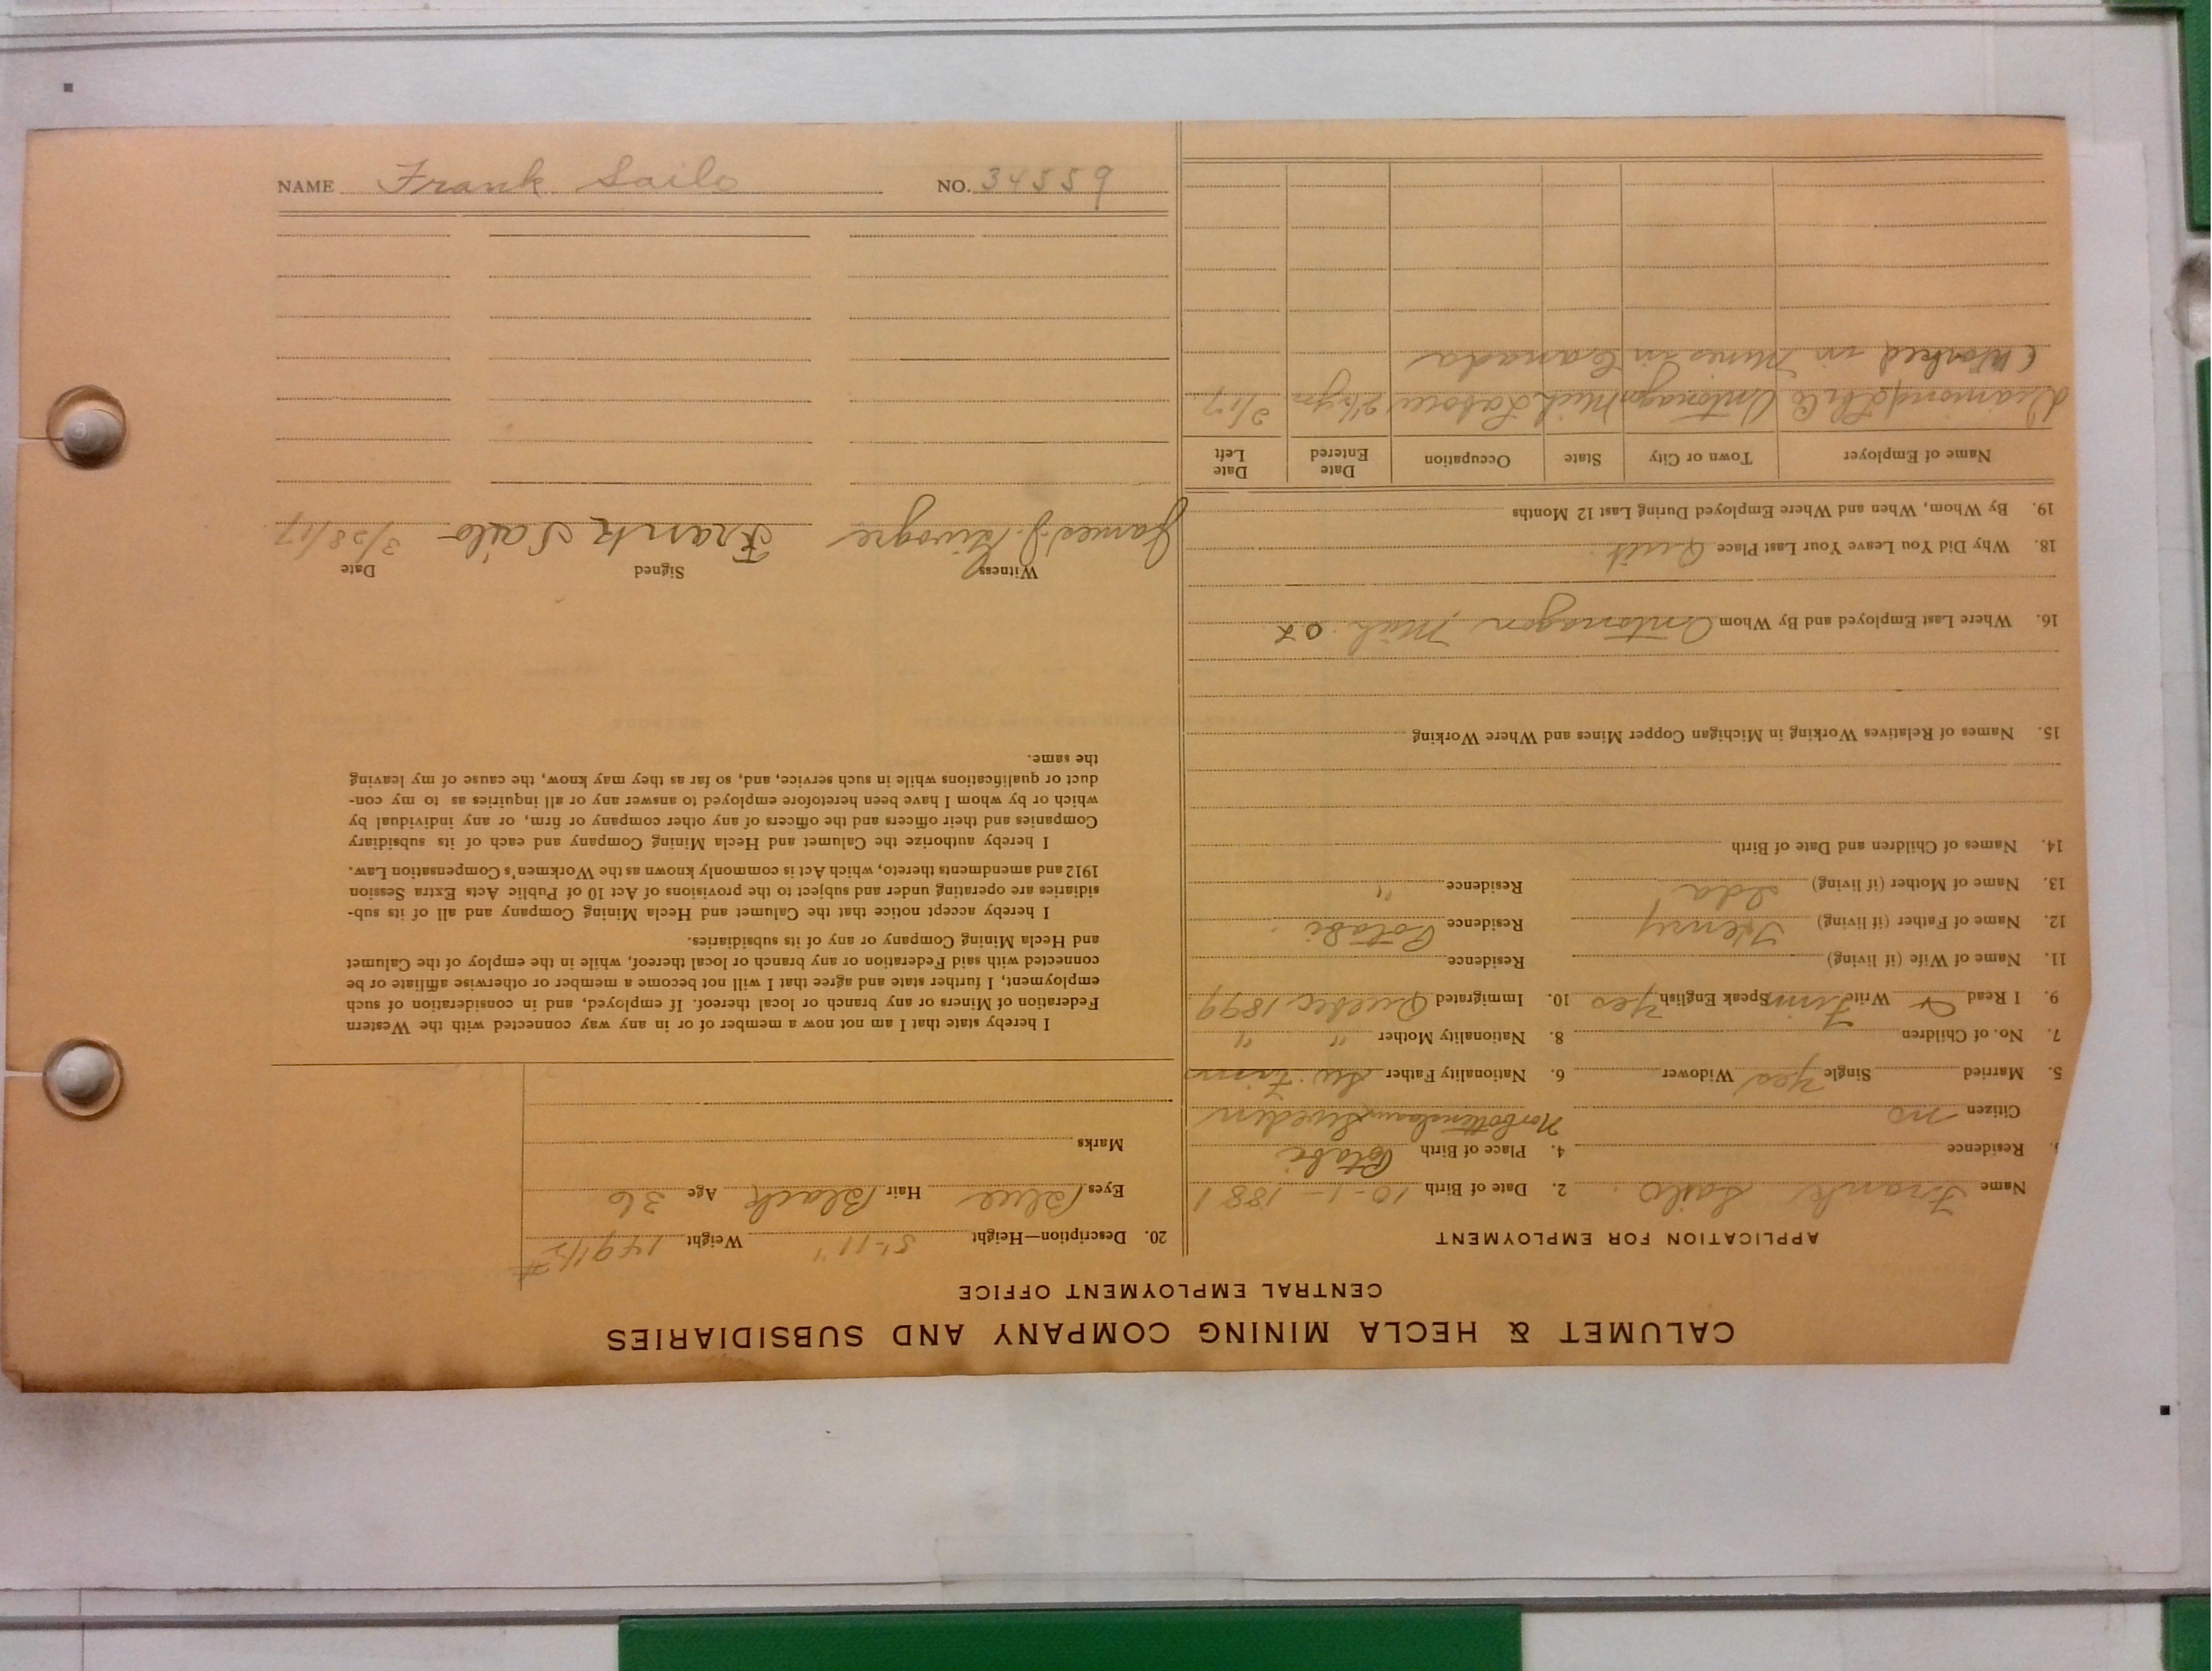 CALUMET & HECLA MINING COMPANY AND SUBSIDIARIES
CENTRAL EMPLOYMENT OFFICE
APPLICATION FOR EMPLOYMENT
Name Frank Sailo. 2. Date of Birth 10-1-1881
Residence 4. Place of Birth
Citizen no Sweden
5. Married Single Yes Widower 6. Nationality Father Sw. Finn
7. No. of Children 8. Nationality Mother " "
9. I Read & Write Finn Speak English Yes 10. Immigrated Quebec 1899
11. Name of Wife (if living) Residence
12. Name of Father (if living) Henry Residence
13. Name of Mother (if living) Ida Residence "
14. Names of Children and Date of Birth
15. Names of Relatives Working in Michigan Copper Mines and Where Working
16. Where Last Employed and By Whom Ontonagon, Mich.
18. Why Did You Leave Your Last Place Quit.
19. By Whom, When and Where Employed During Last 12 Months
Name of Employer Town or City State Occupation Date Entered Date Left
Ontonagon Mich Labor 3/17
(Worked in Mines in Canada
20. Description—Height 5'-11" Weight 149 1/2 #
Eyes Blue Hair Black Age 36
Marks
I hereby state that I am not now a member of or in any way connected with the Western
Federation of Miners or any branch or local thereof. If employed, and in consideration of such
employment, I further state and agree that I will not become a member or otherwise affiliate or be
connected with said Federation or any branch or local thereof, while in the employ of the Calumet
and Hecla Mining Company or any of its subsidiaries.
I hereby accept notice that the Calumet and Hecla Mining Company and all of its sub-
sidiaries are operating under and subject to the provisions of Act 10 of Public Acts Extra Session
1912 and amendments thereto, which Act is commonly known as the Workmen's Compensation Law.
I hereby authorize the Calumet and Hecla Mining Company and each of its subsidiary
Companies and their officers and the officers of any other company or firm, or any individual by
which or by whom I have been heretofore employed to answer any or all inquiries as to my con-
duct or qualifications while in such service, and, so far as they may know, the cause of my leaving
the same.
Witness Signed Date
James J. Frank Sailo 3/28/17
NAME Frank Sailo NO. 34559